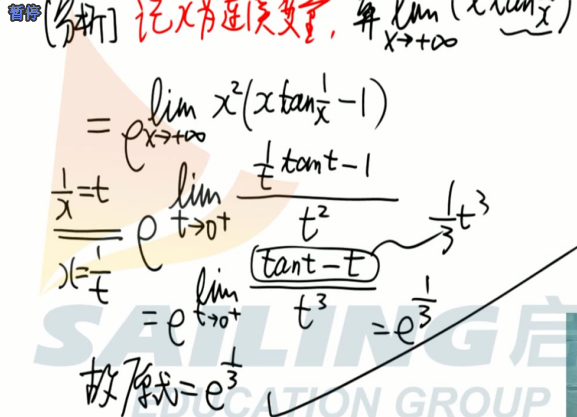 暂停
[分析] 记x为连续变量, 算 lim x→+∞ (x tan 1/x)
= e^{lim x→+∞ x²(x tan 1/x − 1)}
1/x = t
x = 1/t
e^{lim t→0⁺ (1/t tan t − 1)/t²}
= e^{lim t→0⁺ (tan t − t)/t³} 1/3 t³ = e^{1/3}
故原式 = e^{1/3}
SAILING 启
EDUCATION GROUP